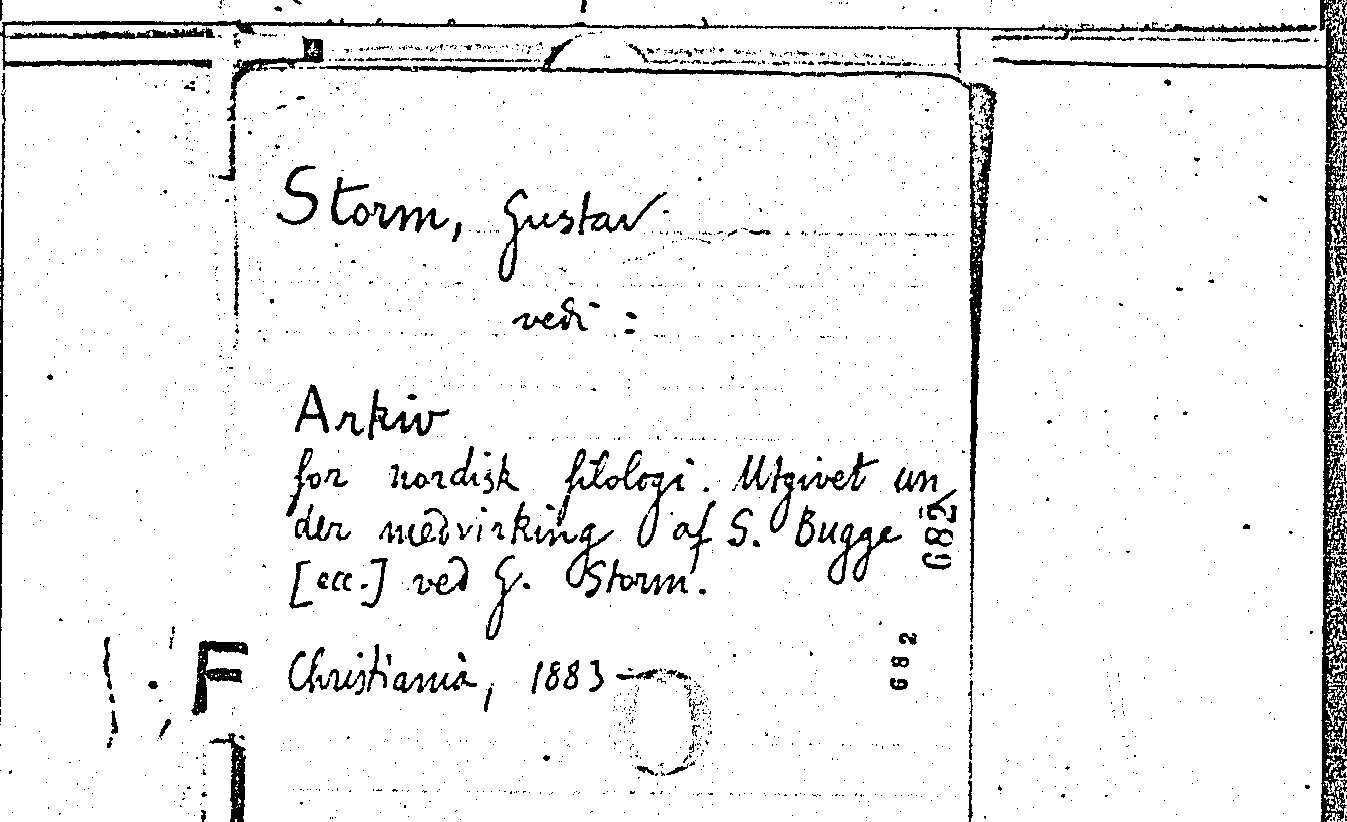 Storm, Gustav
vedi :
Arkiv
for nordisk filologi. Utgivet un
der medvirking af S. Bugge
[ecc.] ved G. Storm.
Christiania, 1883-
682
682
F